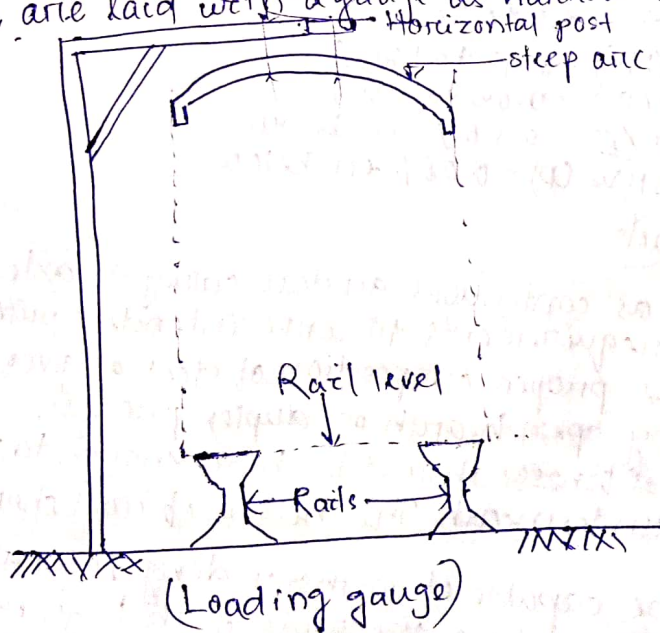 are laid with a gauge as
Horizontal post
steep arc
Rail level
Rails
(Loading gauge)